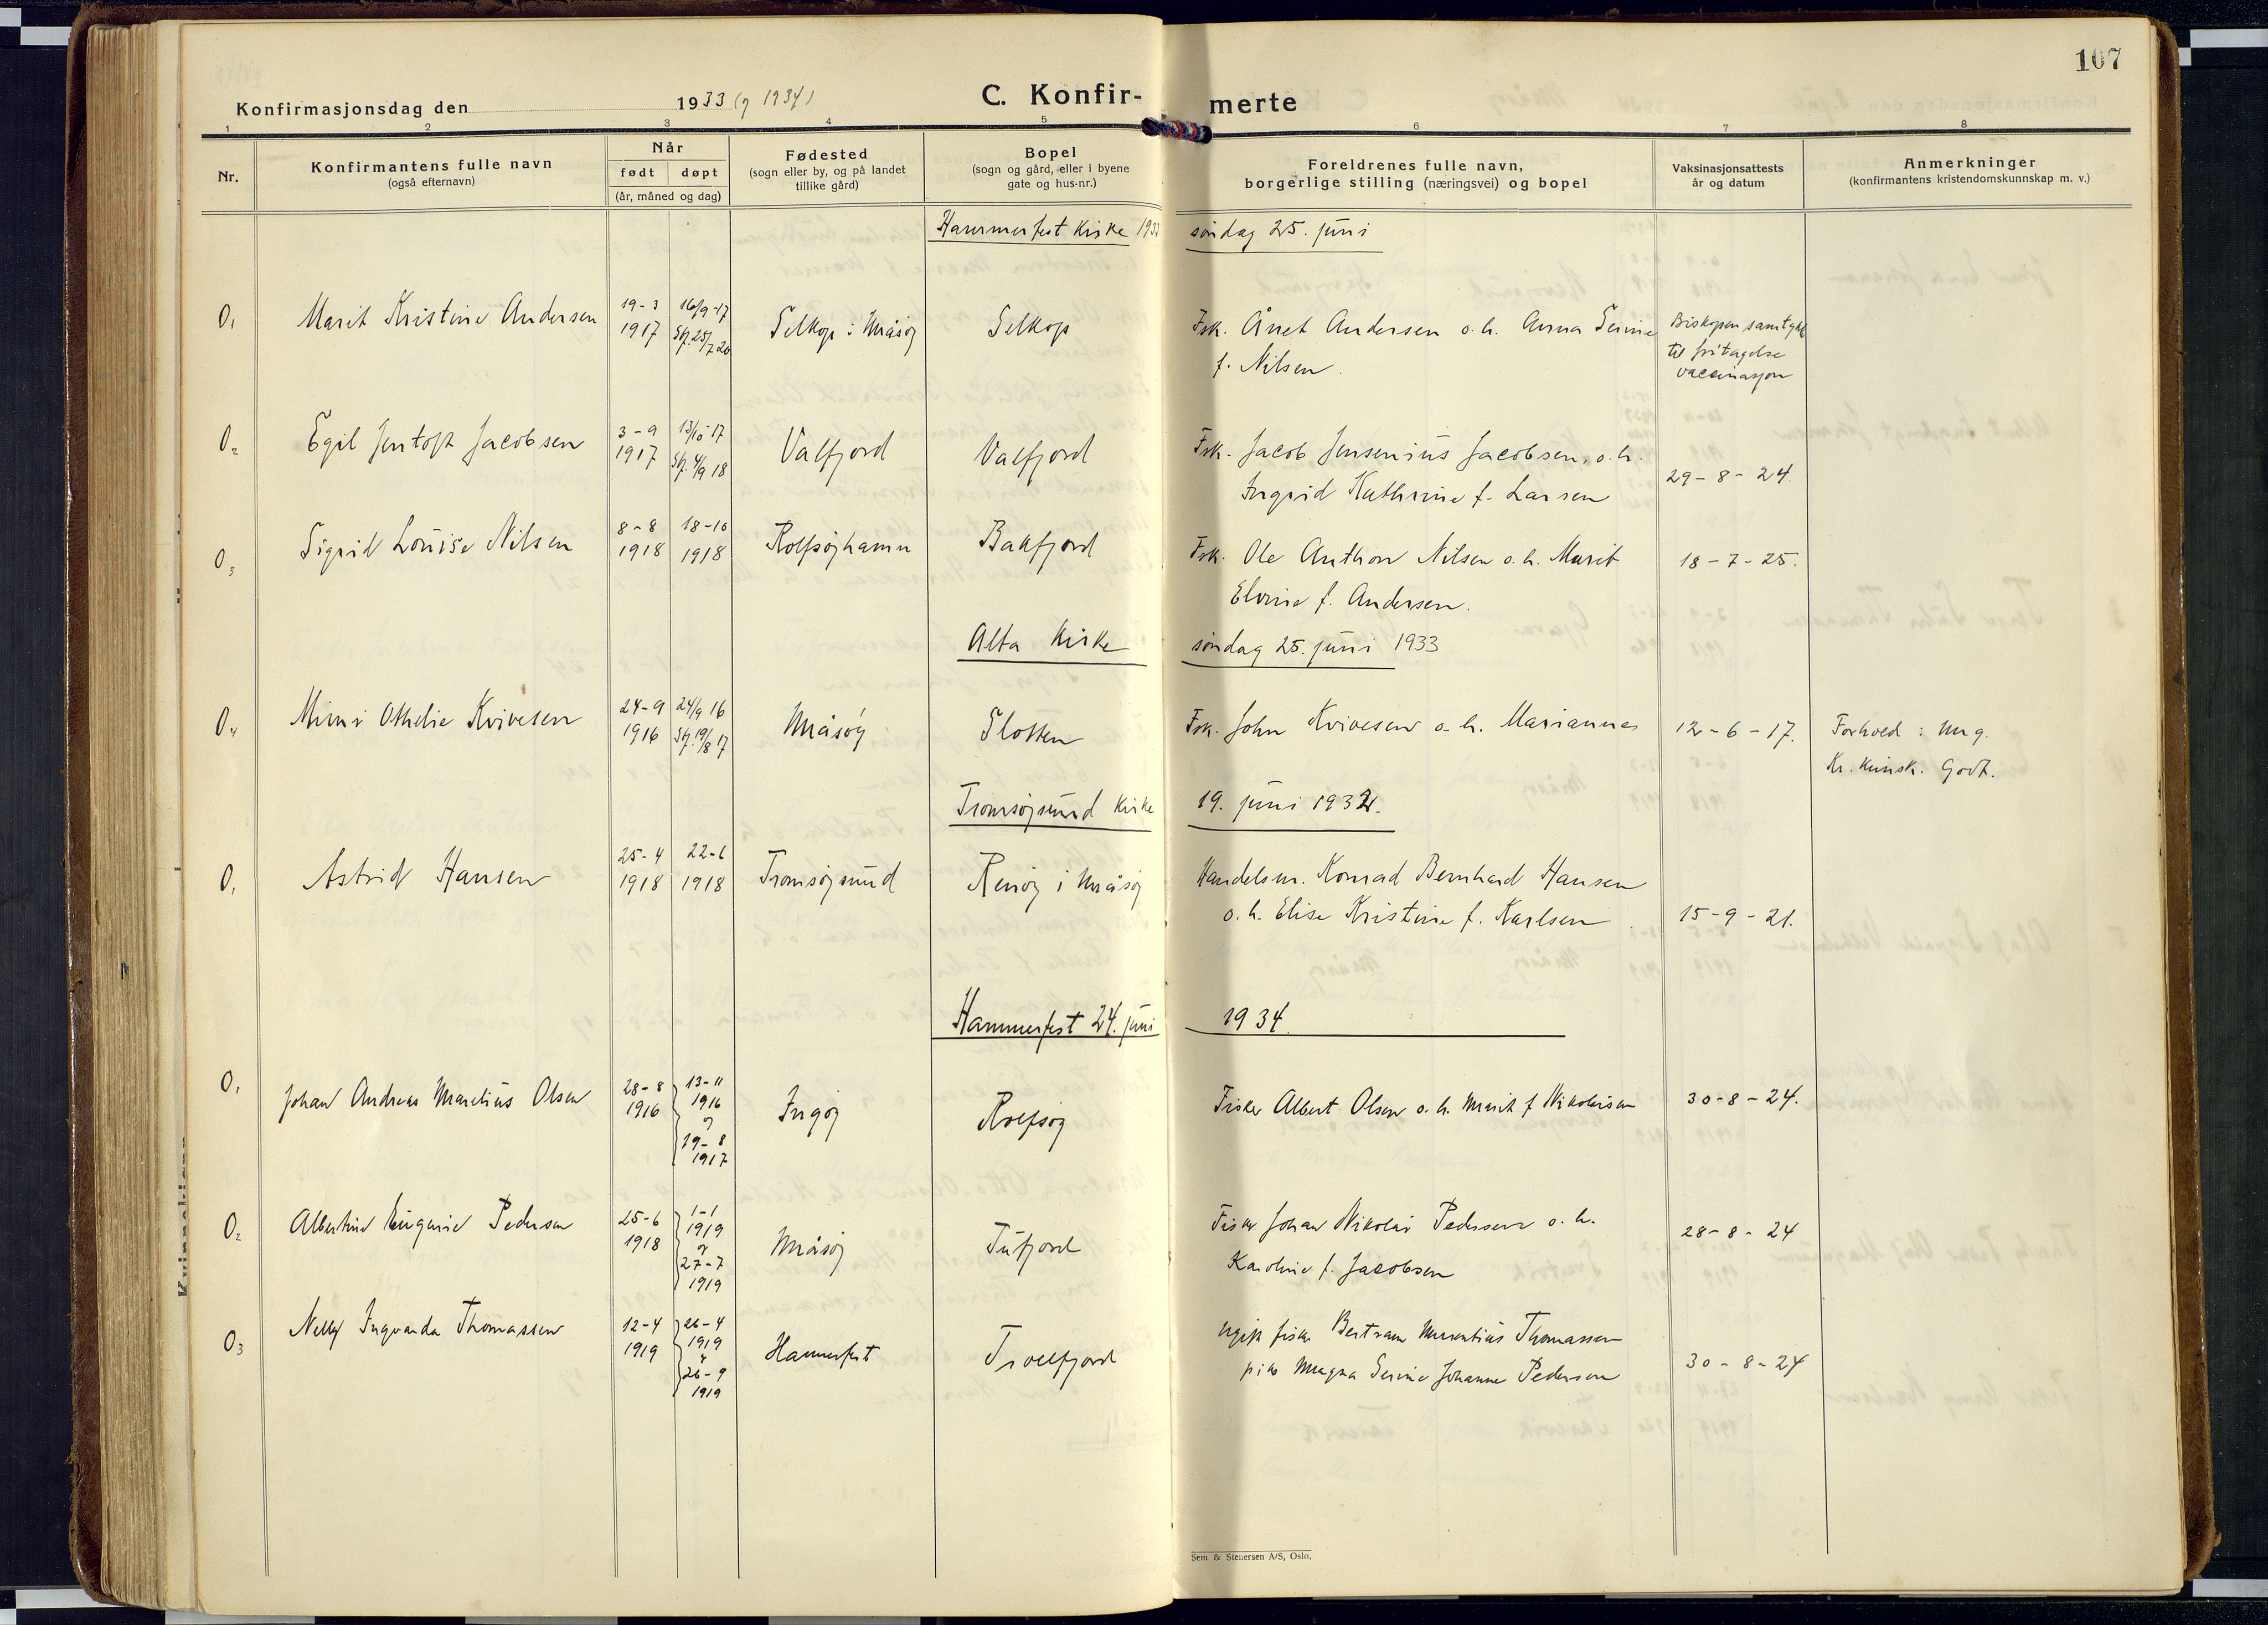 107
Konfirmasjonsdag den 1933 (og 1934)
C. Konfir- merte
1 2 3 4 5 6 7 8
Nr.
Konfirmantens fulle navn
(også efternavn)
Når
født døpt
(år, måned og dag)
Fødested
(sogn eller by, og på landet
tillike gård)
Bopel
(sogn og gård, eller i byene
gate og hus-nr.)
Foreldrenes fulle navn,
borgerlige stilling (næringsvei) og bopel
Vaksinasjonsattests
år og datum
Anmerkninger
(konfirmantens kristendomskunnskap m. v.)
Hammerfest Kirke 1933 søndag 25. juni
O1 Marit Kristine Andersen 19-3 1917 16/9-17 Stf. 25/7 20 Selkop i Måsøy Selkop
Fsk. Ånet Andersen o. h. Anna Serine
f. Nilsen.
Biskopen samtykke
til fritagelse
vaccinasjon
O2 Egil Jentoft Jacobsen 3-9 1917 13/10 17 Stf. 4/9 18 Valfjord Valfjord
Fsk. Jacob Jensenius Jacobsen, o. h.
Ingrid Kathrine f. Larsen
29-8-24.
O3 Sigrid Louise Nilsen 8-8 1918 18-10 1918 Rolfsøyhamn Bakfjord
Fsk. Ole Anthon Nilsen o. h. Marit
Elvine f. Andersen.
18-7-25.
Alta Kirke søndag 25. juni 1933
O4 Mimi Othelie Kvivesen 24-9 1916 24/9 16 Stf. 19/8 17 Måsøy Slotten
Fsk. John Kvivesen o. h. Mariannes
12-6-17.
Forhold: Mg.
Kr. kunsk. Godt.
Tromsøysund Kirke 19. juni 1932.
O1 Astrid Hansen 25-4 1918 22-6 1918 Tromsøysund Renøy i Måsøy
Handelsm. Konrad Bernhard Hansen
o. h. Elise Kristine f. Karlsen
15-9-21.
Hammerfest 24. juni 1934.
O1 Johan Andreas Marelius Olsen 28-8 1916 13-11 1916 og 19-8 1917 Ingøy Rolfsøy
Fisker Albert Olsen o. h. Marit f Nikolaisen
30-8-24.
O2 Albertine Eugenie Pedersen 25-6 1918 1-1 1919 og 27-7 1919 Måsøy Tufjord
Fisker Johan Nikolai Pedersen o. h.
Karoline f. Jacobsen
28-8-24
O3 Nelly Ingvarda Thomassen 12-4 1919 26-4 1919 og 26-9 1919 Hammerfest Trollfjord
ugift fisker Bertram Marentius Thomassen
pike Magna Serine Johanne Pedersen
30-8-24
Sem & Stenersen A/S, Oslo.